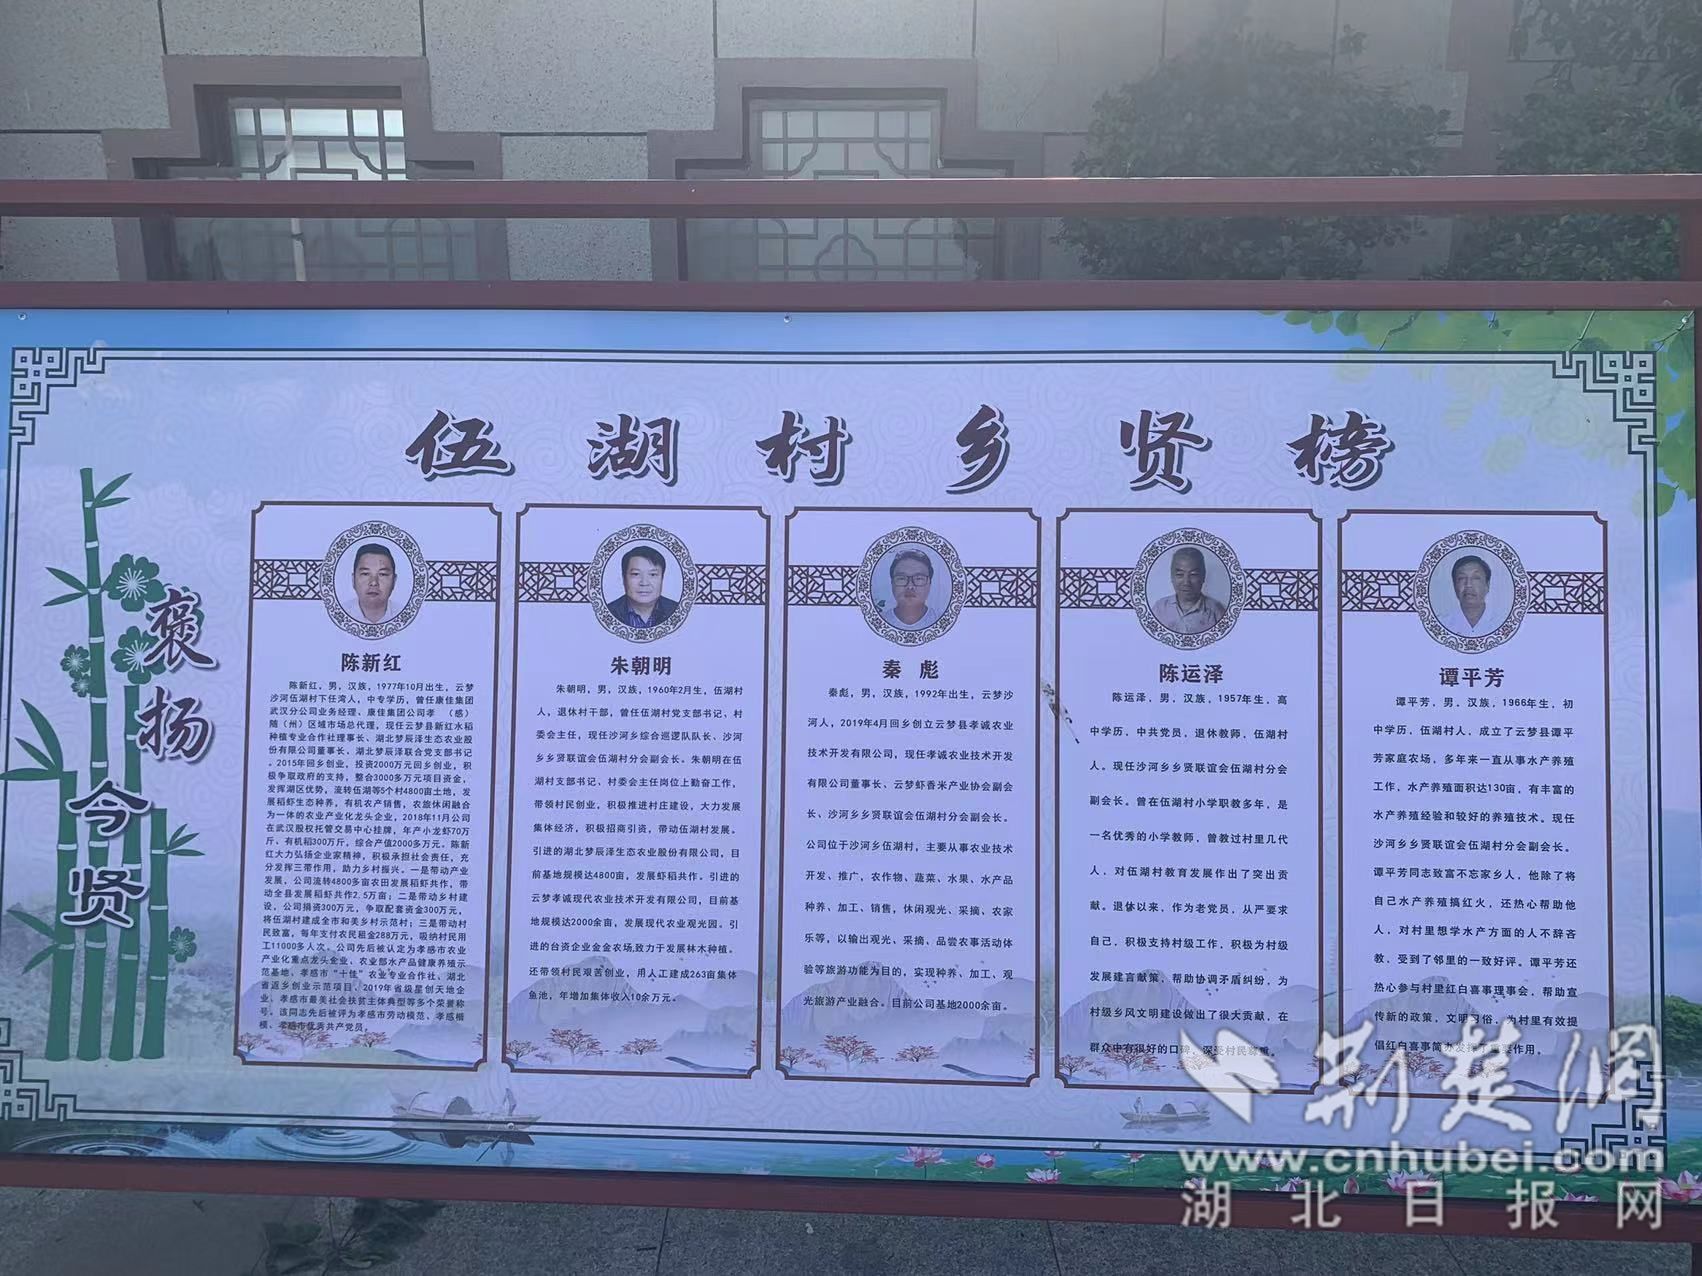 伍湖村乡贤榜
褒扬今贤
陈新红
陈新红，男，汉族，1977年10月出生，云梦
沙河伍湖村下任湾人，中专学历，曾任康佳集团
武汉分公司业务经理、康佳集团公司孝（感）
随（州）区域市场总代理，现任云梦县新红水稻
种植专业合作社理事长、湖北梦辰泽生态农业股
份有限公司董事长、湖北梦辰泽联合党支部书记
。2015年回乡创业，投资2000万元回乡创业，积
极争取政府的支持，整合3000多万元项目资金，
发挥湖区优势，流转伍湖等5个村4800亩土地，发
展稻虾生态种养，有机农产销售，农旅休闲融合
为一体的农业产业化龙头企业，2018年11月公司
在武汉股权托管交易中心挂牌，年产小龙虾70万
斤、有机稻300万斤，综合产值2000多万元。陈新
红大力弘扬企业家精神，积极承担社会责任，充
分发挥三带作用，助力乡村振兴。一是带动产业
发展，公司流转4800多亩农田发展稻虾共作，带
动全县发展稻虾共作2.5万亩；二是带动乡村建
设，公司捐资300万元，争取配套资金300万元，
将伍湖村建成全市和美乡村示范村；三是带动村
民致富，每年支付农民租金288万元，吸纳村民用
工11000多人次。公司先后被认定为孝感市农业
产业化重点龙头企业、农业部水产品健康养殖示
范基地、孝感市“十佳”农业专业合作社、湖北
省返乡创业示范项目、2019年省级星创天地企
业、孝感市最美社会扶贫主体典型等多个荣誉称
号。该同志先后被评为孝感市劳动模范、孝感楷
模、孝感市优秀共产党员。
朱朝明
朱朝明，男，汉族，1960年2月生，伍湖村
人，退休村干部，曾任伍湖村党支部书记、村
委会主任，现任沙河乡综合巡逻队队长、沙河
乡乡贤联谊会伍湖村分会副会长。朱朝明在伍
湖村支部书记、村委会主任岗位上勤奋工作，
带领村民创业，积极推进村庄建设，大力发展
集体经济，积极招商引资，带动伍湖村发展。
引进的湖北梦辰泽生态农业股份有限公司，目
前基地规模达4800亩，发展虾稻共作。引进的
云梦孝诚现代农业技术开发有限公司，目前基
地规模达2000余亩，发展现代农业观光园。引
进的台资企业金金农场,致力于发展林木种植。
还带领村民艰苦创业，用人工建成263亩集体
鱼池，年增加集体收入10余万元。
秦 彪
秦彪，男，汉族，1992年出生，云梦沙
河人，2019年4月回乡创立云梦县孝诚农业
技术开发有限公司，现任孝诚农业技术开发
有限公司董事长、云梦虾香米产业协会副会
长、沙河乡乡贤联谊会伍湖村分会副会长。
公司位于沙河乡伍湖村，主要从事农业技术
开发、推广，农作物、蔬菜、水果、水产品
种养、加工、销售，休闲观光、采摘、农家
乐等，以输出观光、采摘、品尝农事活动体
验等旅游功能为目的，实现种养、加工、观
光旅游产业融合。目前公司基地2000余亩。
陈运泽
陈运泽，男，汉族，1957年生，高
中学历，中共党员，退休教师，伍湖村
人。现任沙河乡乡贤联谊会伍湖村分会
副会长。曾在伍湖村小学职教多年，是
一名优秀的小学教师，曾教过村里几代
人，对伍湖村教育发展作出了突出贡
献。退休以来，作为老党员，从严要求
自己，积极支持村级工作，积极为村级
发展建言献策，帮助协调矛盾纠纷，为
村级乡风文明建设做出了很大贡献，在
群众中有很好的口碑，深受村民尊重。
谭平芳
谭平芳，男，汉族，1966年生，初
中学历，伍湖村人，成立了云梦县谭平
芳家庭农场，多年来一直从事水产养殖
工作，水产养殖面积达130亩，有丰富的
水产养殖经验和较好的养殖技术。现任
沙河乡乡贤联谊会伍湖村分会副会长。
谭平芳同志致富不忘家乡人，他除了将
自己水产养殖搞红火，还热心帮助他
人，对村里想学水产方面的人不辞吝
教，受到了邻里的一致好评。谭平芳还
热心参与村里红白喜事理事会，帮助宣
传新的政策，文明习俗，为村里有效提
倡红白喜事简办发挥了重要作用。
荆楚网
www.cnhubei.com
湖北日报网